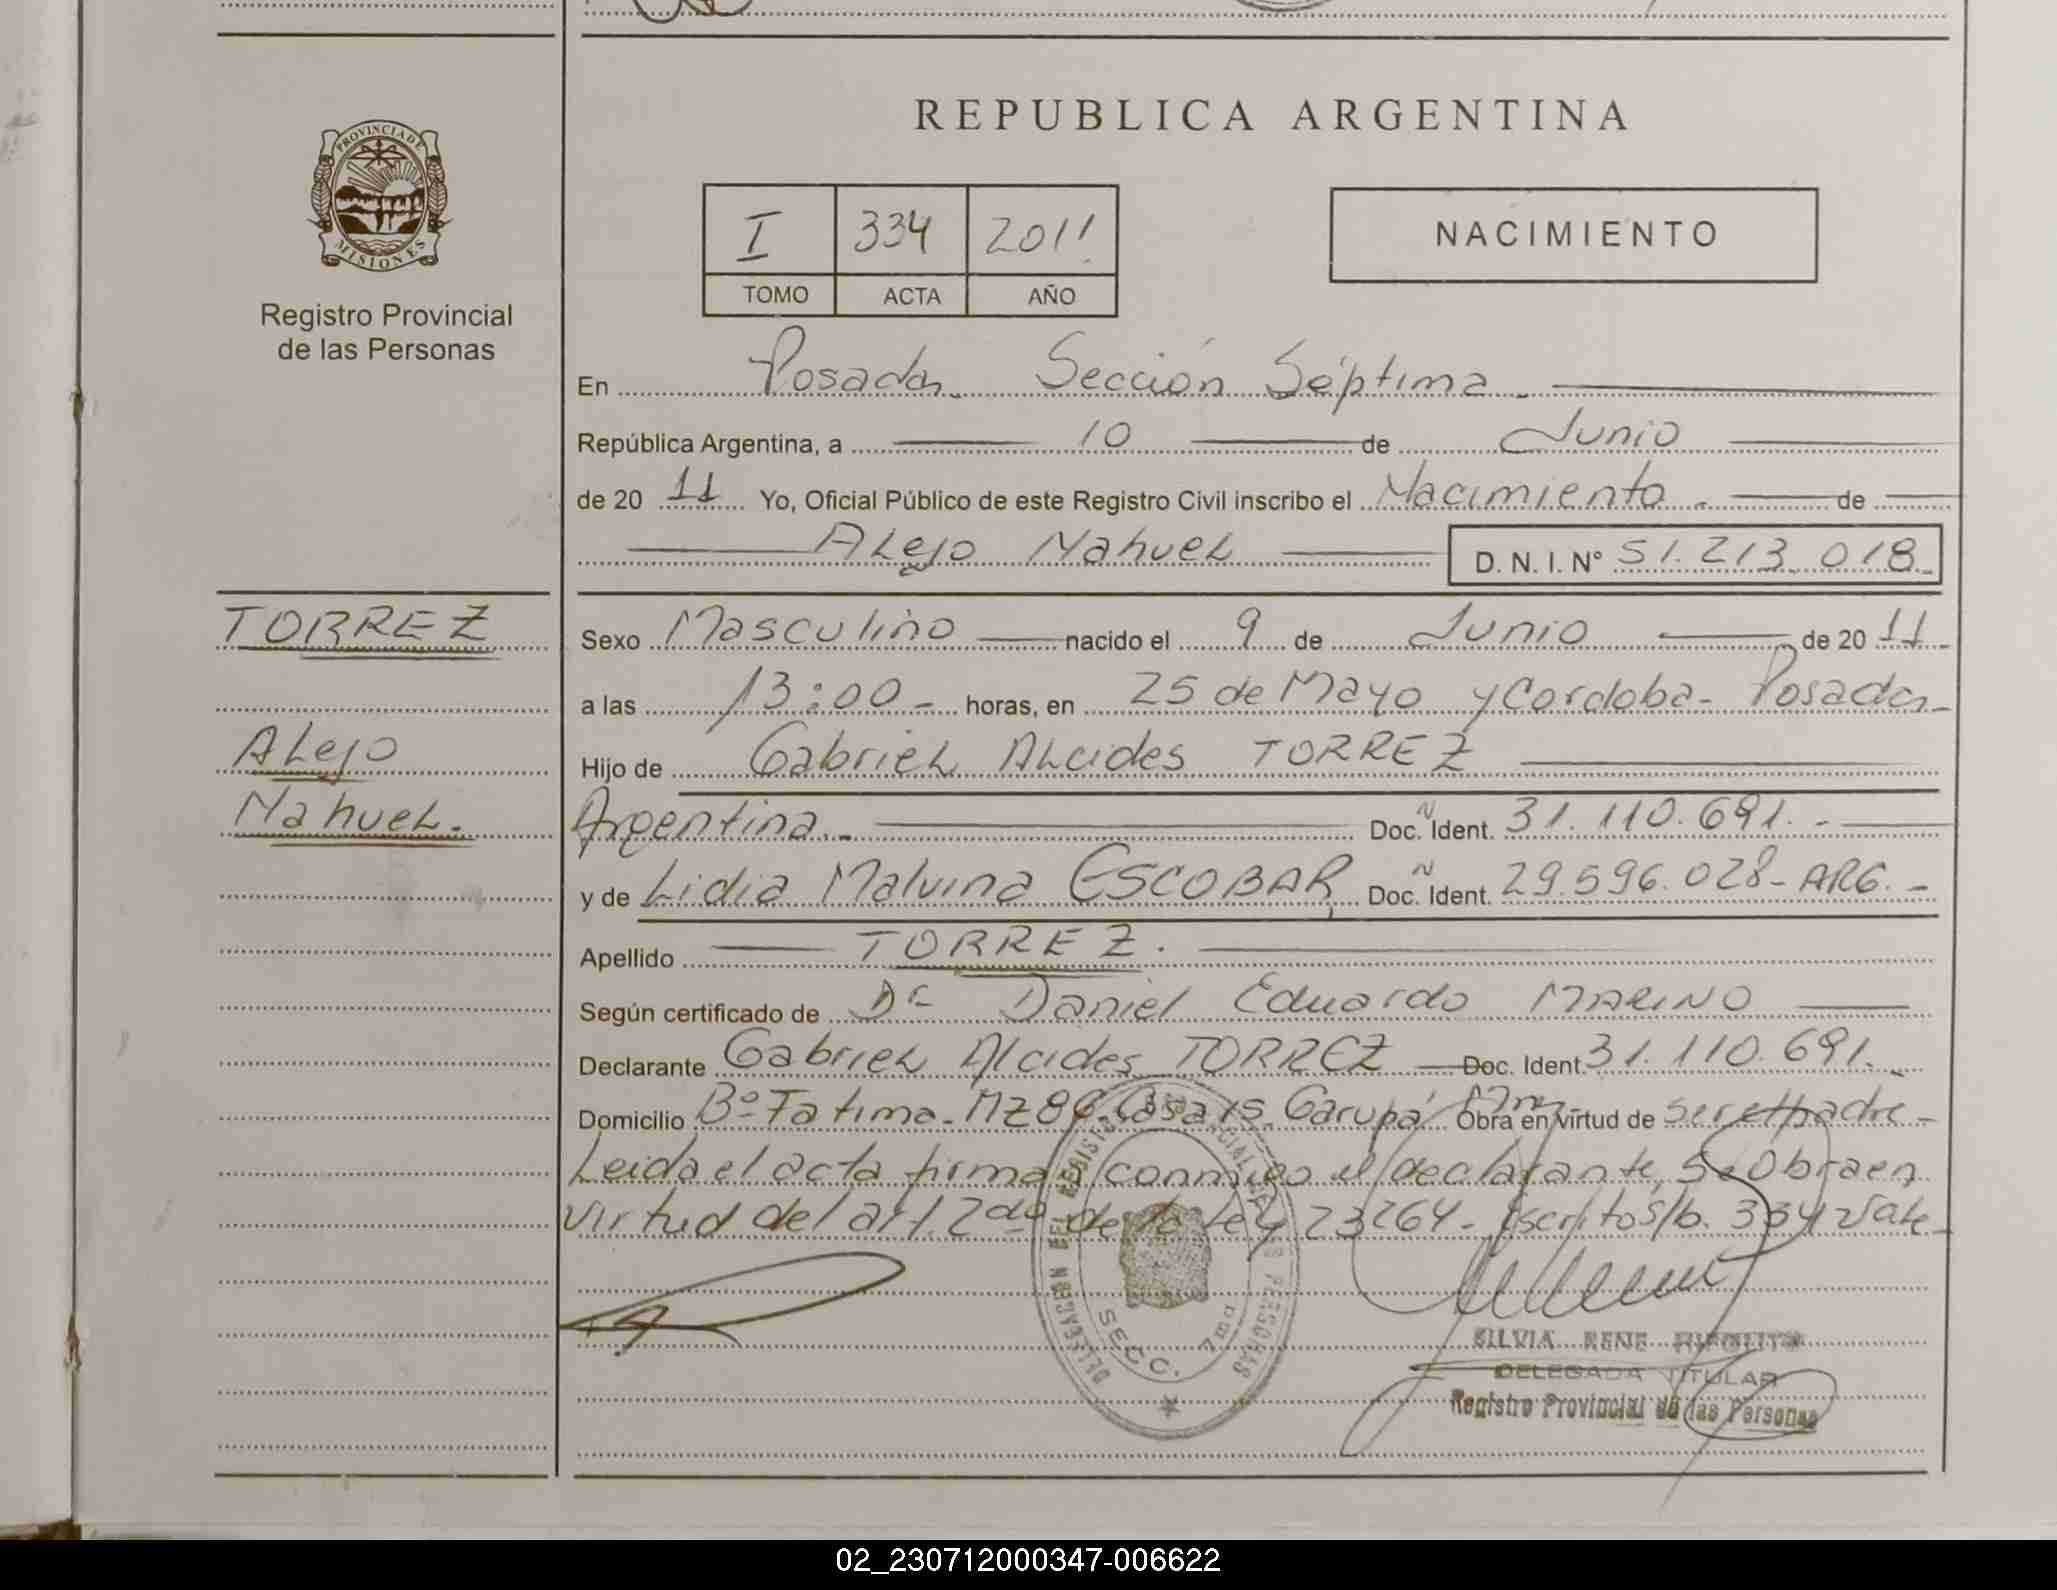 REPUBLICA ARGENTINA
PROVINCIA DE MISIONES
Registro Provincial
de las Personas
I 334 2011
TOMO ACTA AÑO
NACIMIENTO
En Posadas Sección Séptima
República Argentina, a 10 de Junio
de 20 11 Yo, Oficial Público de este Registro Civil inscribo el Nacimiento. de
Alejo Nahuel D. N. I. N° 51.213.018
TORREZ
Alejo
Nahuel.
Sexo Masculino nacido el 9 de Junio de 20 11
a las 13:00 horas, en 25 de Mayo y Cordoba- Posadas
Hijo de Gabriel Alcides TORREZ
Argentina. Doc. Ident. 31.110.691.
y de Lidia Malvina ESCOBAR Doc. Ident. 29.596.028- ARG.
Apellido TORREZ.
Según certificado de Dr Daniel Eduardo MARINO
Declarante Gabriel Alcides TORREZ Doc. Ident. 31.110.691.
Domicilio Bº Fatima. MZ 86 Casa 15. Garupá Mnes Obra en virtud de ser el padre
Leida el acta firma conmigo el declarante, Se Obra en
virtud del art. 2do de la Ley 23264. Escrito s/b. 334 Vale
DELEGACION DEL REGISTRO PROVINCIAL DE LAS PERSONAS
SECC. 7ma
SILVIA RENE HIPOLITO
DELEGADA TITULAR
Registro Provincial de las Personas
02_230712000347-006622